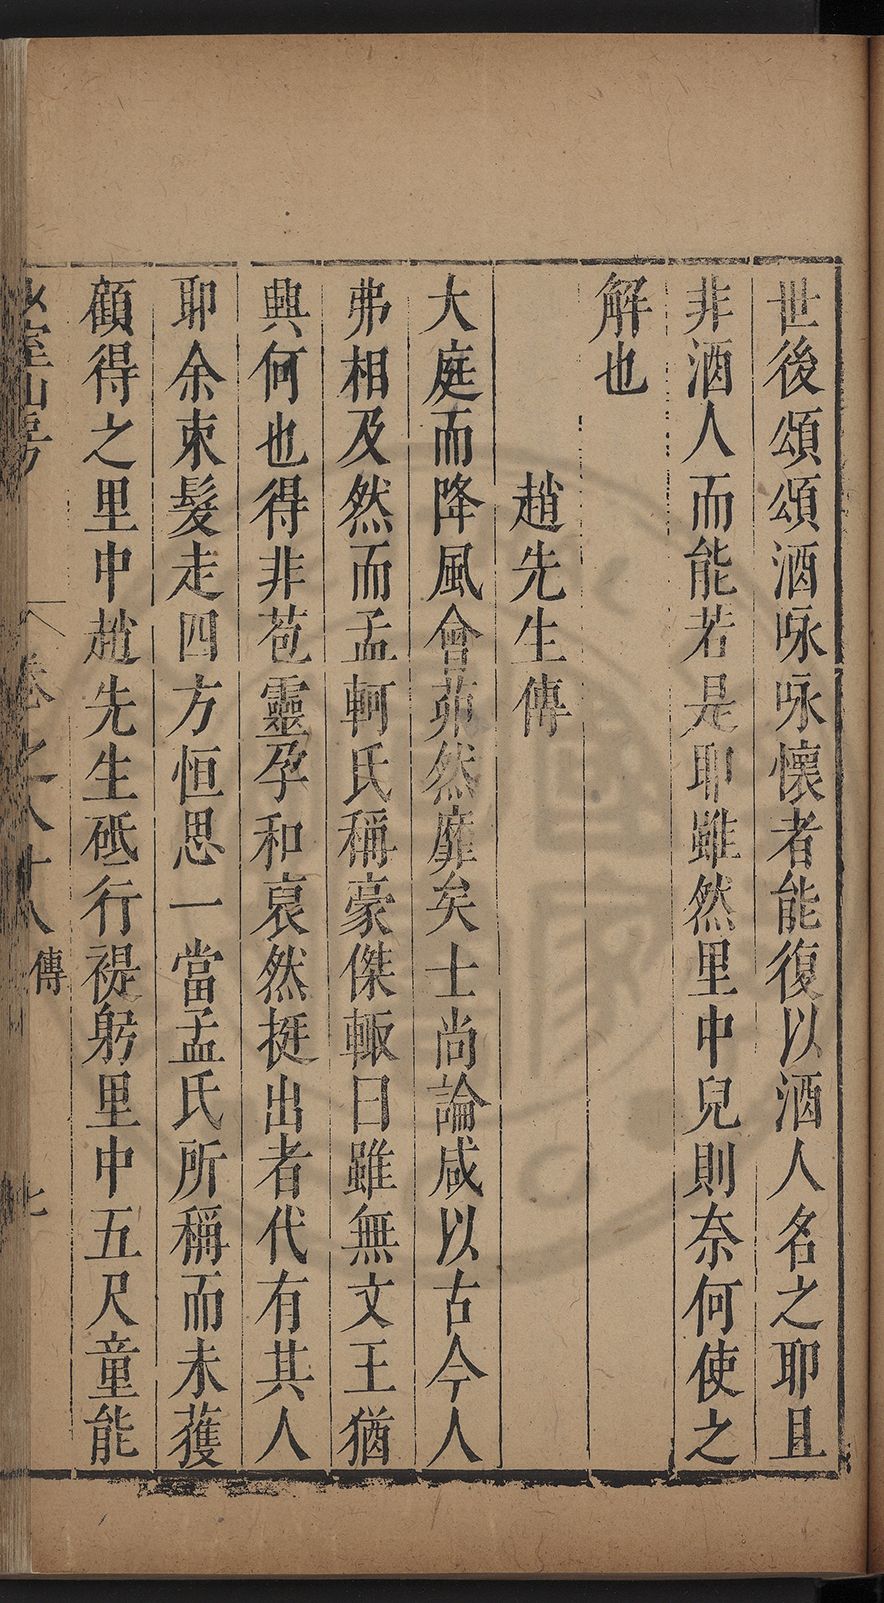 世後頌頌酒咏咏懷者能復以酒人名之耶且
非酒人而能若是耶雖然里中兒則奈何使之
解也
趙先生傳
大庭而降風會茀然靡矣士尚論咸以古今人
弗相及然而孟軻氏稱豪傑輙曰雖無文王猶
興何也得非苞靈孕和裒然挺出者代有其人
耶余束髮走四方恒思一當孟氏所稱而未獲
顧得之里中趙先生砥行禔躬里中五尺童能
室山房
卷之八十八 傳
七